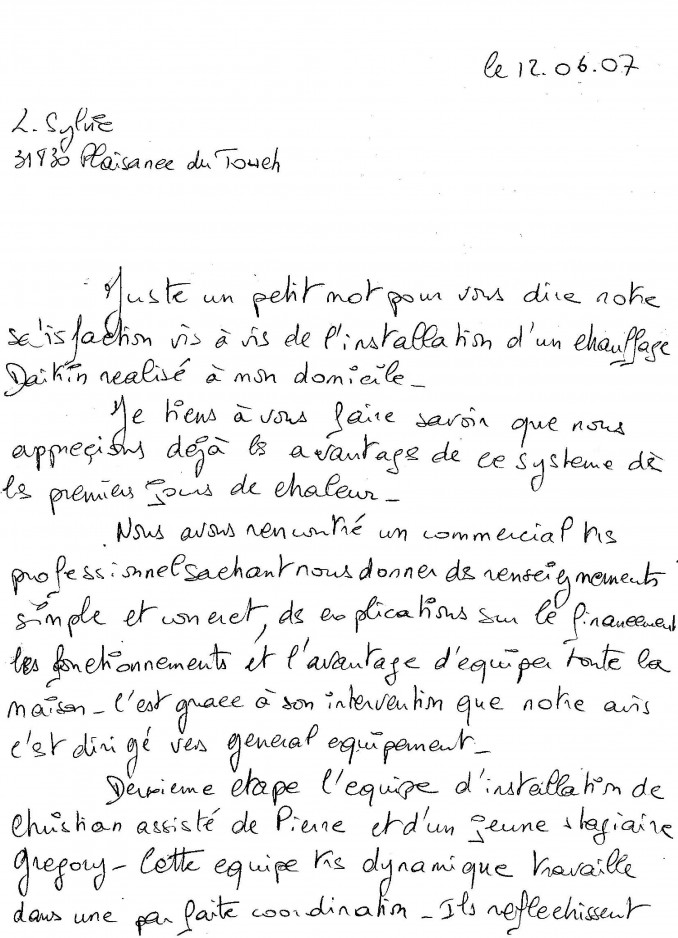 le 12.06.07
L. Sylvie
31830 Plaisance du Touch
Juste un petit mot pour vous dire notre
satisfaction vis à vis de l'installation d'un chauffage
Daikin realisé à mon domicile_
Je tiens à vous faire savoir que nous
appreçions déjà les avantage de ce systeme dès
les premiers jours de chaleur_
Nous avons rencontré un commercial très
professionnel sachant nous donner des renseignements
simple et concret, des explications sur le financement
les fonctionnements et l'avantage d'équiper toute la
maison_ C'est grace à son intervention que notre avis
c'est dirigé vers general equipement_
Deuxieme etape l'equipe d'installation de
Christian assisté de Pierre et d'un jeune stagiaire
Gregory_ Cette equipe très dynamique travaille
dans une parfaite coordination_ Ils reflechissent